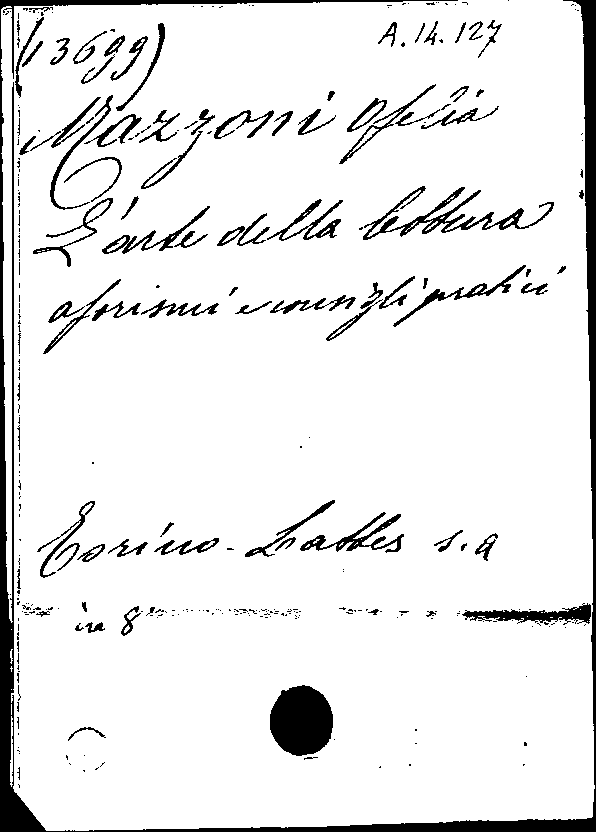 (13699)
A.14.127
Mazzoni Ofelia
L'arte della lettura
aforismi e consigli pratici
Torino - Lattes s.a
in 8°